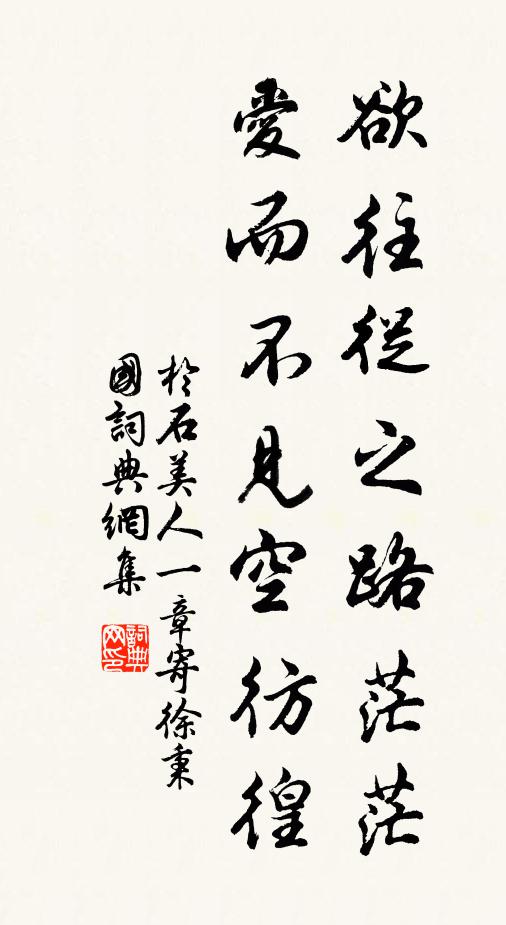 欲往從之路茫茫
愛而不見空彷徨
於石美人一章寄徐秉
國詞典網集
詞典網印